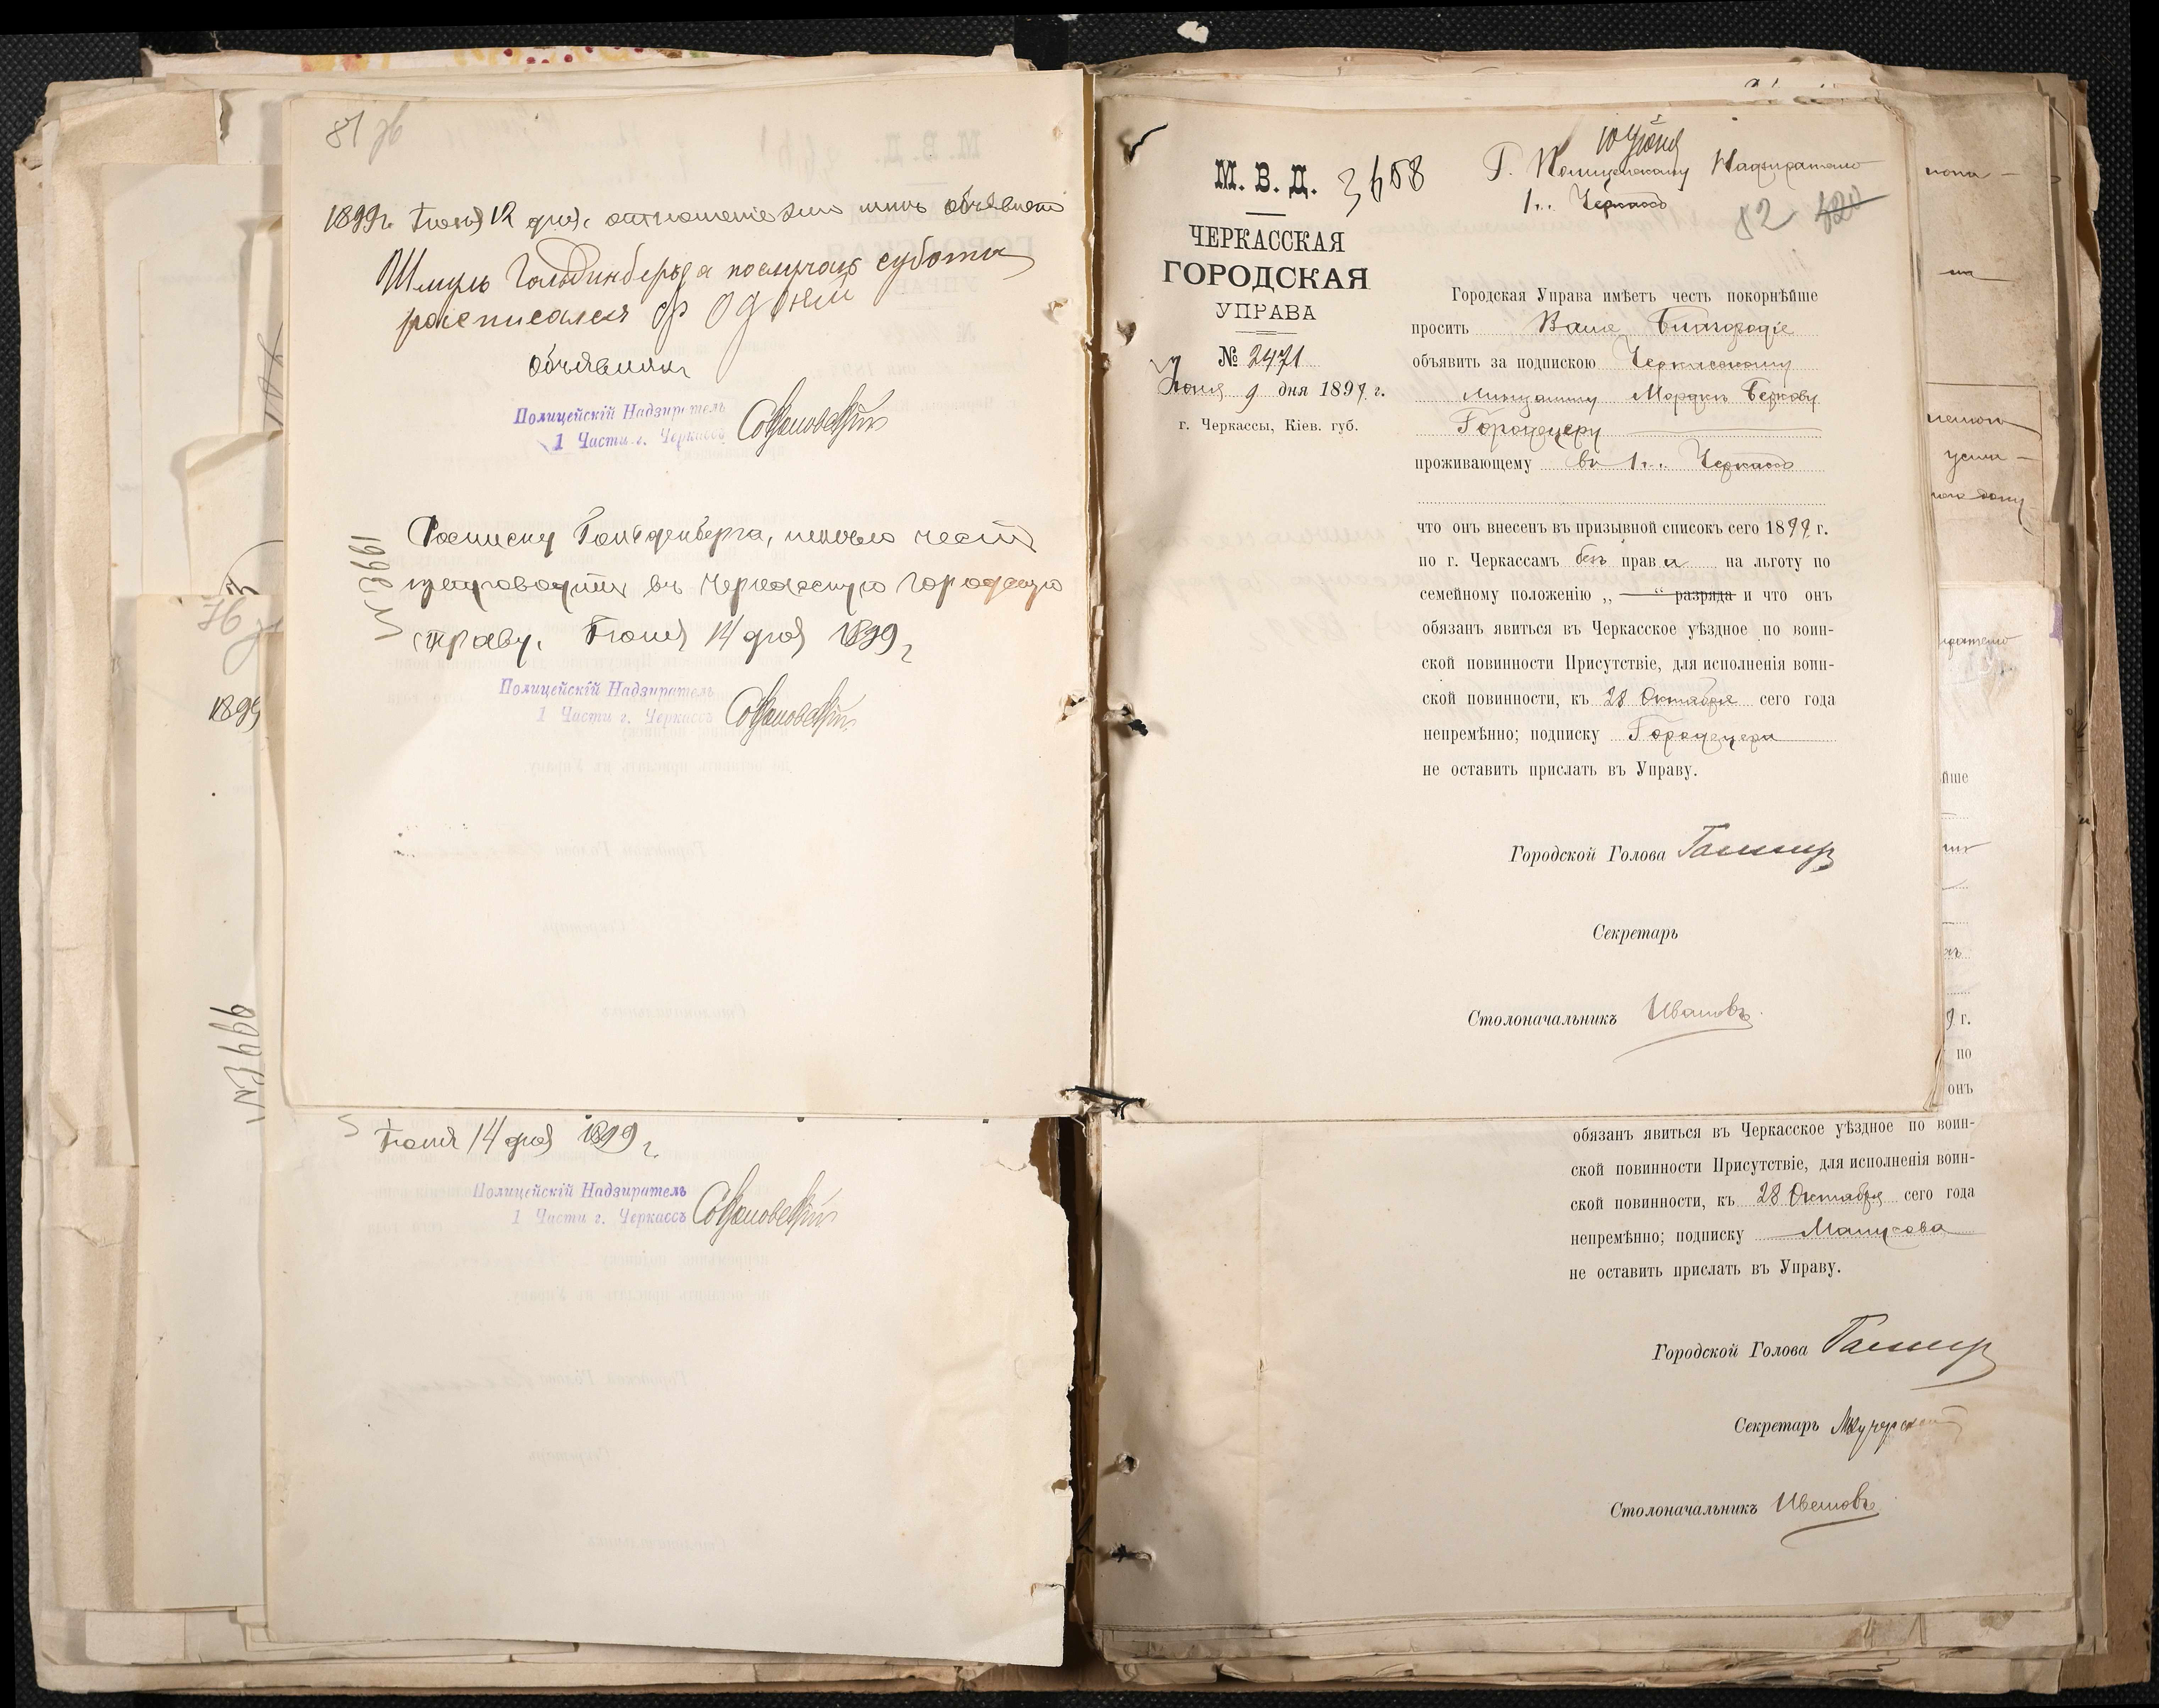 81 об
1899г. Іюня 12 дня, отношеніе это мнѣ объявлено
Шмуль Гольдинберга послучаю субботы
росписался
Объявилъ
Полицейскій Надзиратель
1 Части г. Черкассъ
Росписку Гольденберга, имѣю честь
препроводить въ Черкасскую Городскую
Управу. Іюня 14 дня 1899 г.
№ 3661
Полицейскій Надзиратель
1 Части г. Черкассъ
1899
Іюня 14 дня 1899 г.
Полицейскій Надзиратель
1 Части г. Черкассъ
10 Іюня
М. В. Д. 3658
Г. Полицейскому Надзирателю
1 ч. Черкассъ
82 420
ЧЕРКАССКАЯ
ГОРОДСКАЯ
УПРАВА
№ 2471
Іюня 9 дня 1899 г.
г. Черкассы, Кіев. губ.
Городская Управа имѣетъ честь покорнѣйше
просить Ваше Благородіе
объявить за подпискою Черкасскому
мѣщанину Мордку Беркову
Городецеру
проживающему въ 1 ч. Черкассъ
что онъ внесенъ въ призывной списокъ сего 1899 г.
по г. Черкассамъ безъ права на льготу по
семейному положенію „ — “ разряда и что онъ
обязанъ явиться въ Черкасское уѣздное по воин-
ской повинности Присутствіе, для исполненія воин-
ской повинности, къ 28 Октября сего года
непремѣнно; подписку Городецера
не оставить прислать въ Управу.
Городской Голова
Секретарь
Столоначальникъ Ивановъ
обязанъ явиться въ Черкасское уѣздное по воин-
ской повинности Присутствіе, для исполненія воин-
ской повинности, къ 28 Октября сего года
непремѣнно; подписку
не оставить прислать въ Управу.
Городской Голова
Секретарь
Столоначальникъ Ивановъ